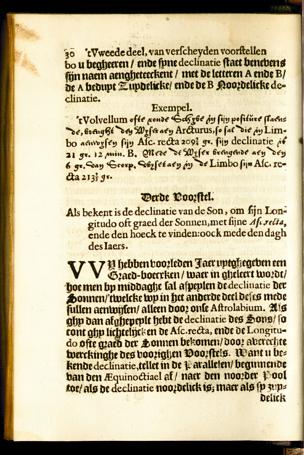 30 tVweede deel, van verscheyden voorstellen
bo u begheeren / ende syne declinatie staet benevens
sijn naem aengheteeckent / met de letteren A ende B /
de A beduyt Zuydelicke / ende de B Noordelicke de-
clinatie.
Exempel.
tVolvellum ofte ronde Schijve in sijn positure staen-
de, brenght den Wijser aen Arcturus, so sal die in Lim-
bo aenwijsen sijn Asc. recta 209¾ gr. sijn declinatie is
21 gr. 12 min. B. Mede de Wijser brengende aen den
6 gr. van Scorp. Wijset aen in de Limbo sijn Asc. re-
cta 213¾ gr.
Derde Voorstel.
Als bekent is de declinatie van de Son, om sijn Lon-
gitudo oft graed der Sonnen, met sijne Asc. recta,
ende den hoeck te vinden: oock mede den dagh
des Iaers.
VVY hebben voorleden Jaer uytghegeven een
Graed-boecrken / waer in gheleert wordt /
hoe men by middaghe sal afpeylen de declinatie der
Sonnen / twelcke wy in het anderde deel deses mede
sullen aenwijsen / alleen door onse Astrolabium. Als
ghy dan afghepeylt hebt de declinatie des Sons / so
cont ghy lichtelijck en de Asc. recta, ende de Longitu-
do ofte graed der Sonnen bekomen / door averechte
werckinghe des voorighen Voorstels. Want u be-
kende declinatie, tellet in de Parallelen / beginnende
van den Æquinoctiael af / naer den noorder Pool
toe / als de declinatie noordelick is; maer als sy zuy-
delick